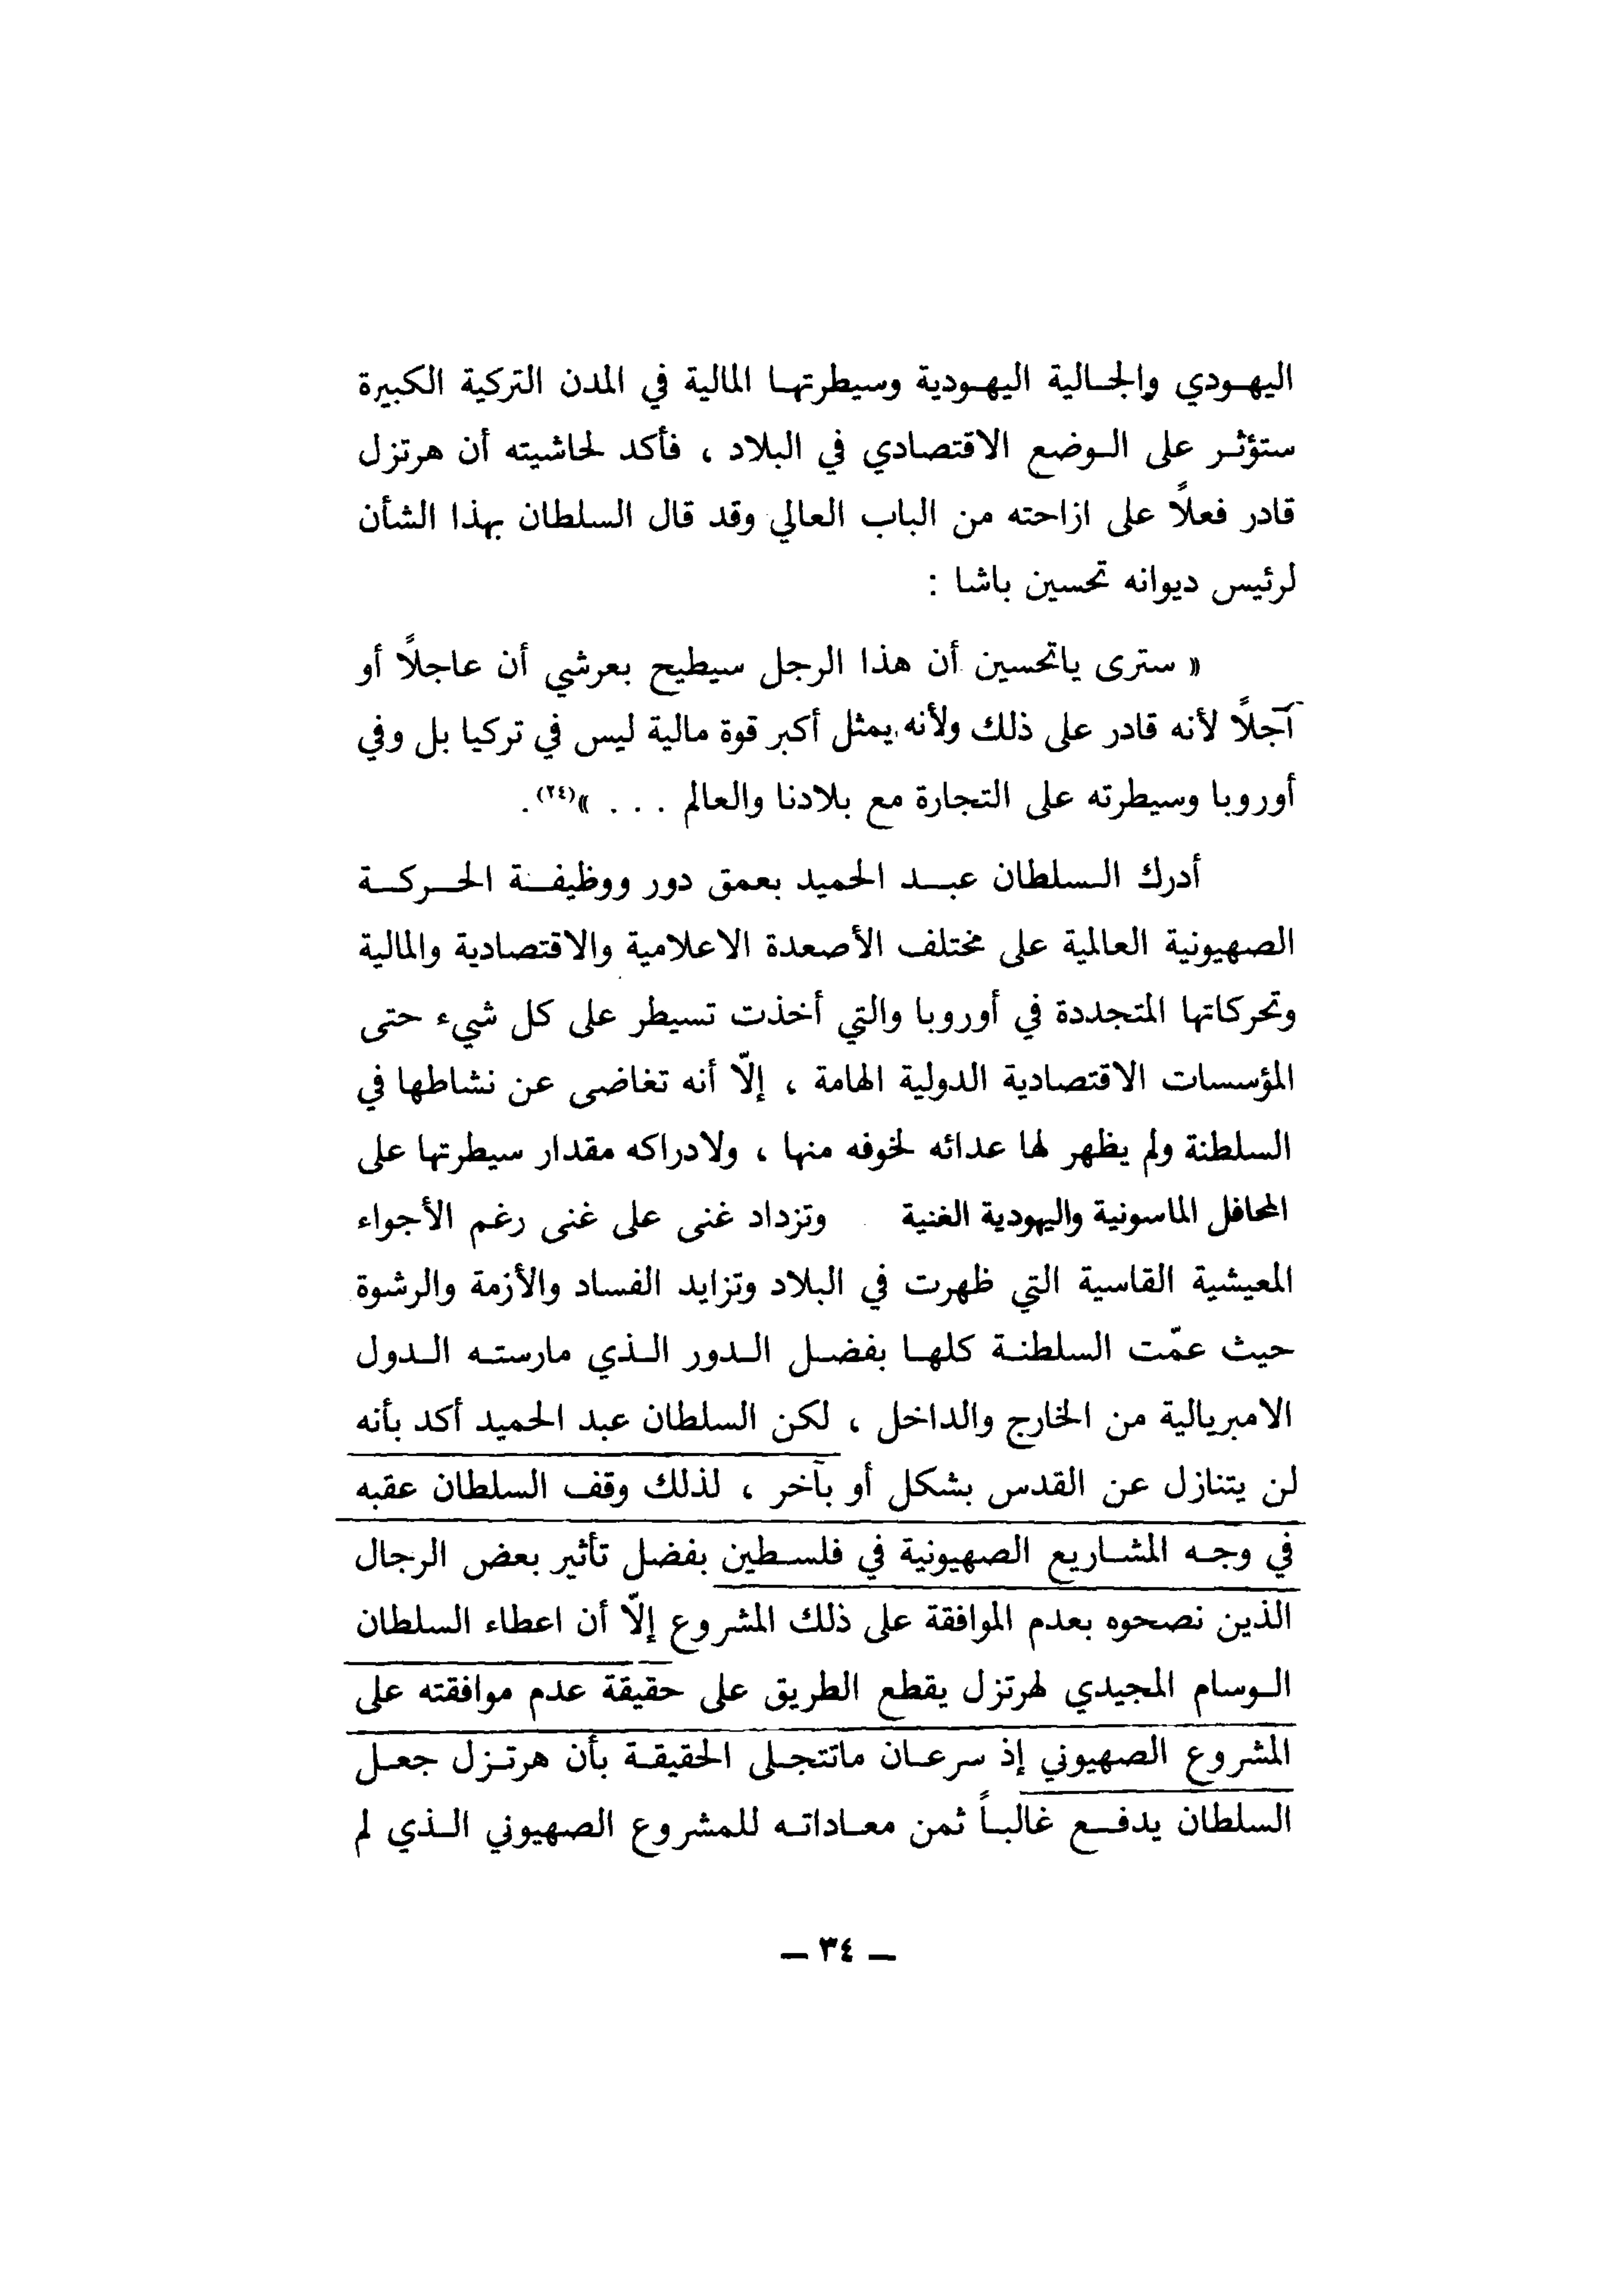 اليهودي والجالية اليهودية وسيطرتها المالية في المدن التركية الكبيرة
ستؤثر على الوضع الاقتصادي في البلاد ، فأكد لحاشيته أن هرتزل
قادر فعلاً على ازاحته من الباب العالي وقد قال السلطان بهذا الشأن
لرئيس ديوانه تحسين باشا :
« سترى ياتحسين أن هذا الرجل سيطيح بعرشي أن عاجلاً أو
آجلاً لأنه قادر على ذلك ولأنه يمثل أكبر قوة مالية ليس في تركيا بل وفي
أوروبا وسيطرته على التجارة مع بلادنا والعالم . . . »(٢٤) .
أدرك السلطان عبد الحميد بعمق دور ووظيفة الحركة
الصهيونية العالمية على مختلف الأصعدة الاعلامية والاقتصادية والمالية
وتحركاتها المتجددة في أوروبا والتي أخذت تسيطر على كل شيء حتى
المؤسسات الاقتصادية الدولية الهامة ، إلّا أنه تغاضى عن نشاطها في
السلطنة ولم يظهر لها عدائه لخوفه منها ، ولادراكه مقدار سيطرتها على
المحافل الماسونية واليهودية الغنية وتزداد غنى على غنى رغم الأجواء
المعيشية القاسية التي ظهرت في البلاد وتزايد الفساد والأزمة والرشوة
حيث عمّت السلطنة كلها بفضل الدور الذي مارسته الدول
الامبريالية من الخارج والداخل ، لكن السلطان عبد الحميد أكد بأنه
لن يتنازل عن القدس بشكل أو بآخر ، لذلك وقف السلطان عقبه
في وجه المشاريع الصهيونية في فلسطين بفضل تأثير بعض الرجال
الذين نصحوه بعدم الموافقة على ذلك المشروع إلّا أن اعطاء السلطان
الوسام المجيدي لهرتزل يقطع الطريق على حقيقة عدم موافقته على
المشروع الصهيوني إذ سرعان ماتتجلى الحقيقة بأن هرتزل جعل
السلطان يدفع غالباً ثمن معاداته للمشروع الصهيوني الذي لم
— ٣٤ —